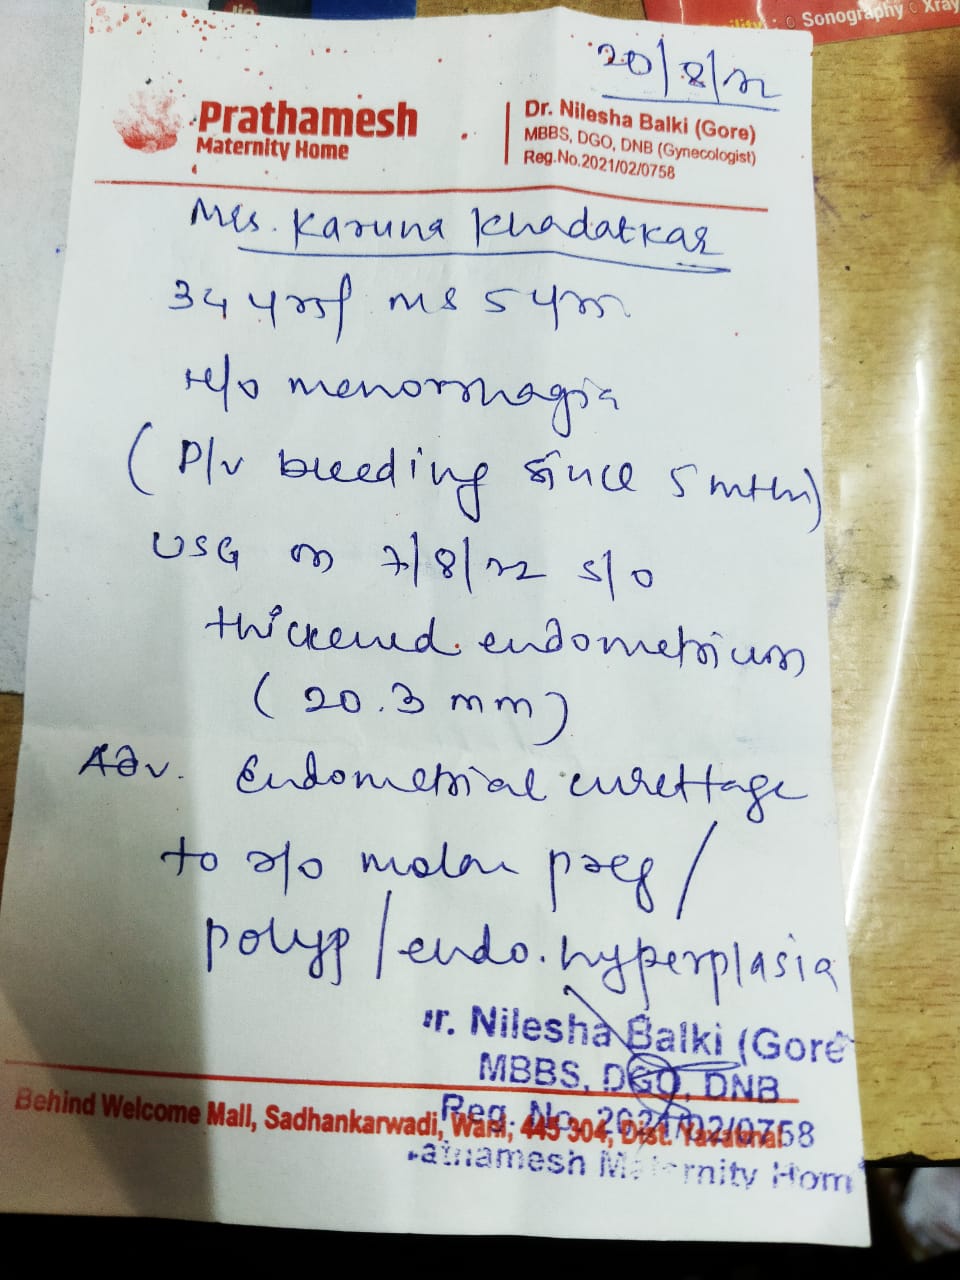 Sonography Xray
20/8/22
Prathamesh
Maternity Home
Dr. Nilesha Balki (Gore)
MBBS, DGO, DNB (Gynecologist)
Reg.No.2021/02/0758
Mrs. Karuna Khadatkar
34 yrs/f MS 5 yrs
H/o menorrhagia
(P/v bleeding since 5 mths)
USG on 7/8/22 s/o
thickened endometrium
(20.3 mm)
Adv. Endometrial curettage
to r/o molar preg/
polyp/endo. hyperplasia
r. Nilesha Balki (Gore
MBBS, DGO, DNB
Reg. No. 2021/02/0758
Behind Welcome Mall, Sadhankarwadi, Wani, 445 304, Dist. Yavatmal
athamesh Maternity Hom